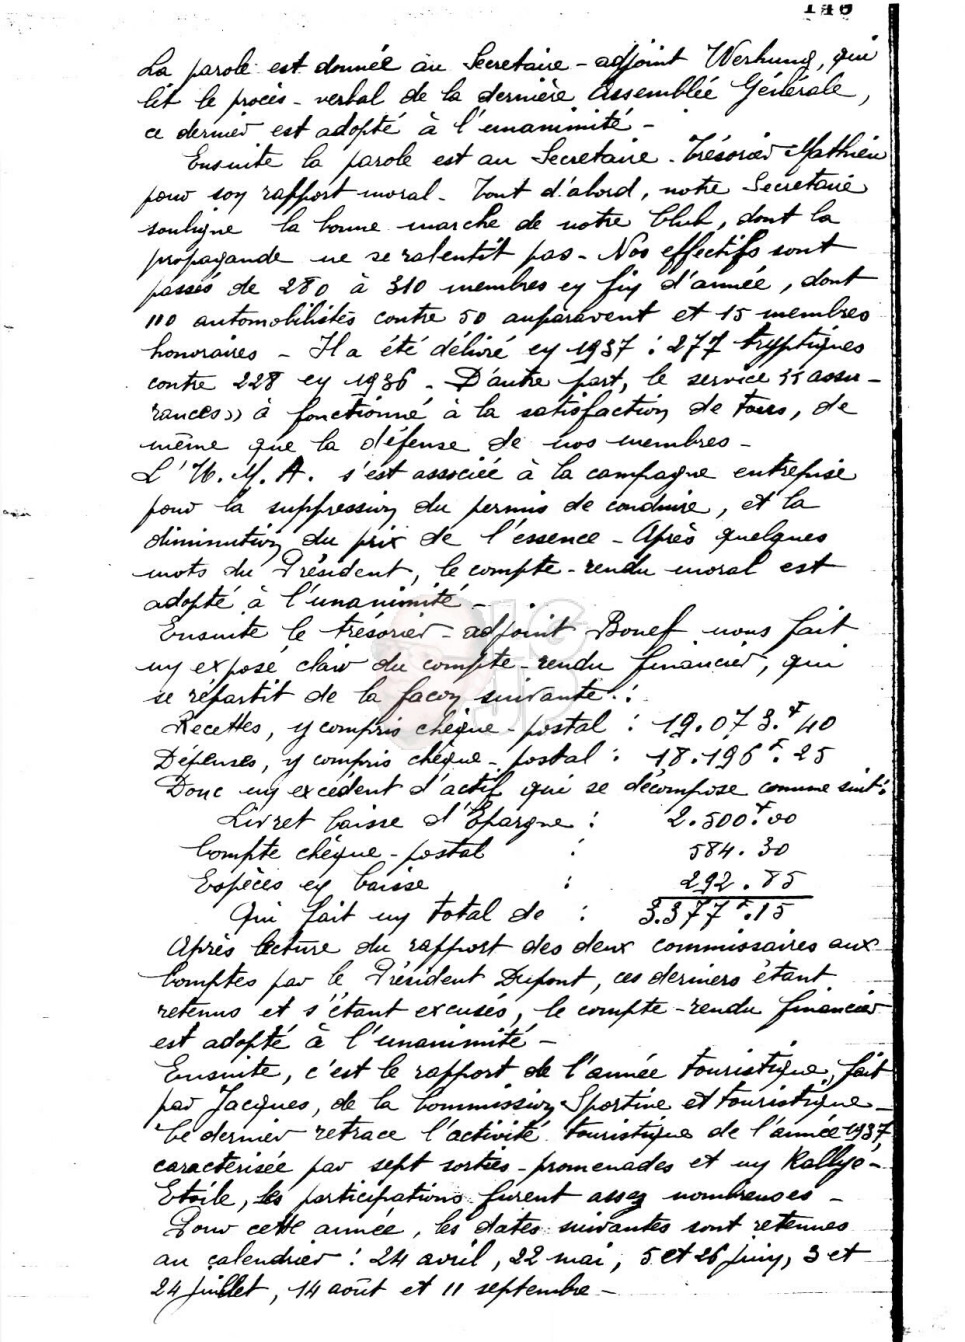 146
La parole est donnée au Secretaire-adjoint Werkung, qui
lit le procès-verbal de la dernière Assemblée Générale,
ce dernier est adopté à l'unanimité -
Ensuite la parole est au Secretaire-Trésorier Mathieu
pour son rapport moral - Tout d'abord, notre Secretaire
souligne la bonne marche de notre Club, dont la
propagande ne se ralentit pas - Nos effectifs sont
passés de 280 à 310 membres en fin d'année, dont
110 automobilistes contre 50 auparavent et 15 membres
honoraires - Il a été délivré en 1937 : 277 tryptiques
contre 228 en 1936 - D'autre part, le service "assu-
rances" à fonctionné à la satisfaction de tous, de
même que la défense de nos membres -
L'U.M.A. s'est associée à la campagne entreprise
pour la suppression du permis de conduire, et la
diminution du prix de l'essence - Après quelques
mots du Président, le compte-rendu moral est
adopté à l'unanimité -
Ensuite le trésorier-adjoint Bonef nous fait
un exposé clair du compte-rendu financier, qui
se répartit de la façon suivante :
Recettes, y compris chèque-postal : 19.073.f 40
Dépenses, y compris chèque-postal : 18.196f. 25
Donc un excédent d'actif qui se décompose comme suit :
Livret Caisse d'Epargne : 2.500f.00
Compte chèque-postal : 584.30
Espèces en Caisse : 292.85
Qui fait un total de : 3.377f.15
Après lecture du rapport des deux commissaires aux
Comptes par le Président Dupont, ces derniers étant
retenus et s'étant excusés, le compte-rendu financier
est adopté à l'unanimité -
Ensuite, c'est le rapport de l'année touristique, fait
par Jacques, de la Commission Sportive et touristique -
Ce dernier retrace l'activité touristique de l'année 1937,
caractérisée par sept sorties-promenades et un Rallye-
Etoile, les participations furent assez nombreuses -
Pour cette année, les dates suivantes sont retenues
au calendrier : 24 avril, 22 mai, 5 et 26 juin, 3 et
24 juillet, 14 août et 11 septembre -